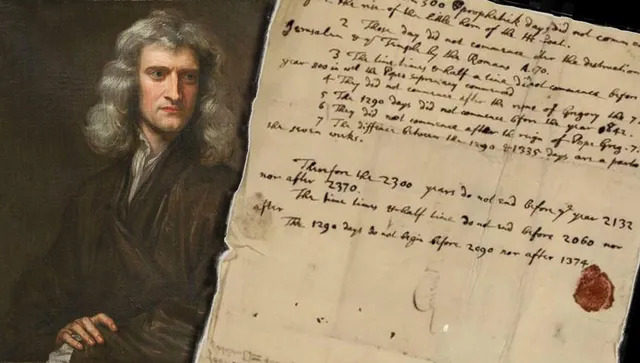 2300 prophetick days did not comm
the rise of the little horn of the He Goat.
2 Those day did not commence after the destruction
Jerusalem & ye Temple by the Romans A. 70.
3 The time times & half a time did not commence before
year 800 in wch the Popes supremacy commenced
4 They did not commence after the reigne of Gregory the 7.
5 The 1290 days did not commence before the year 842.
6 They did not commence after the reigne of Pope Greg. 7.
7 The diffence between the 1290 & 1335 days are a parts
the seven weeks.
Therfore the 2300 years do not end before ye year 2132
nor after 2370.
The time times & half time do not end before 2060 nor
after
The 1290 days do not begin before 2090 nor after 1374